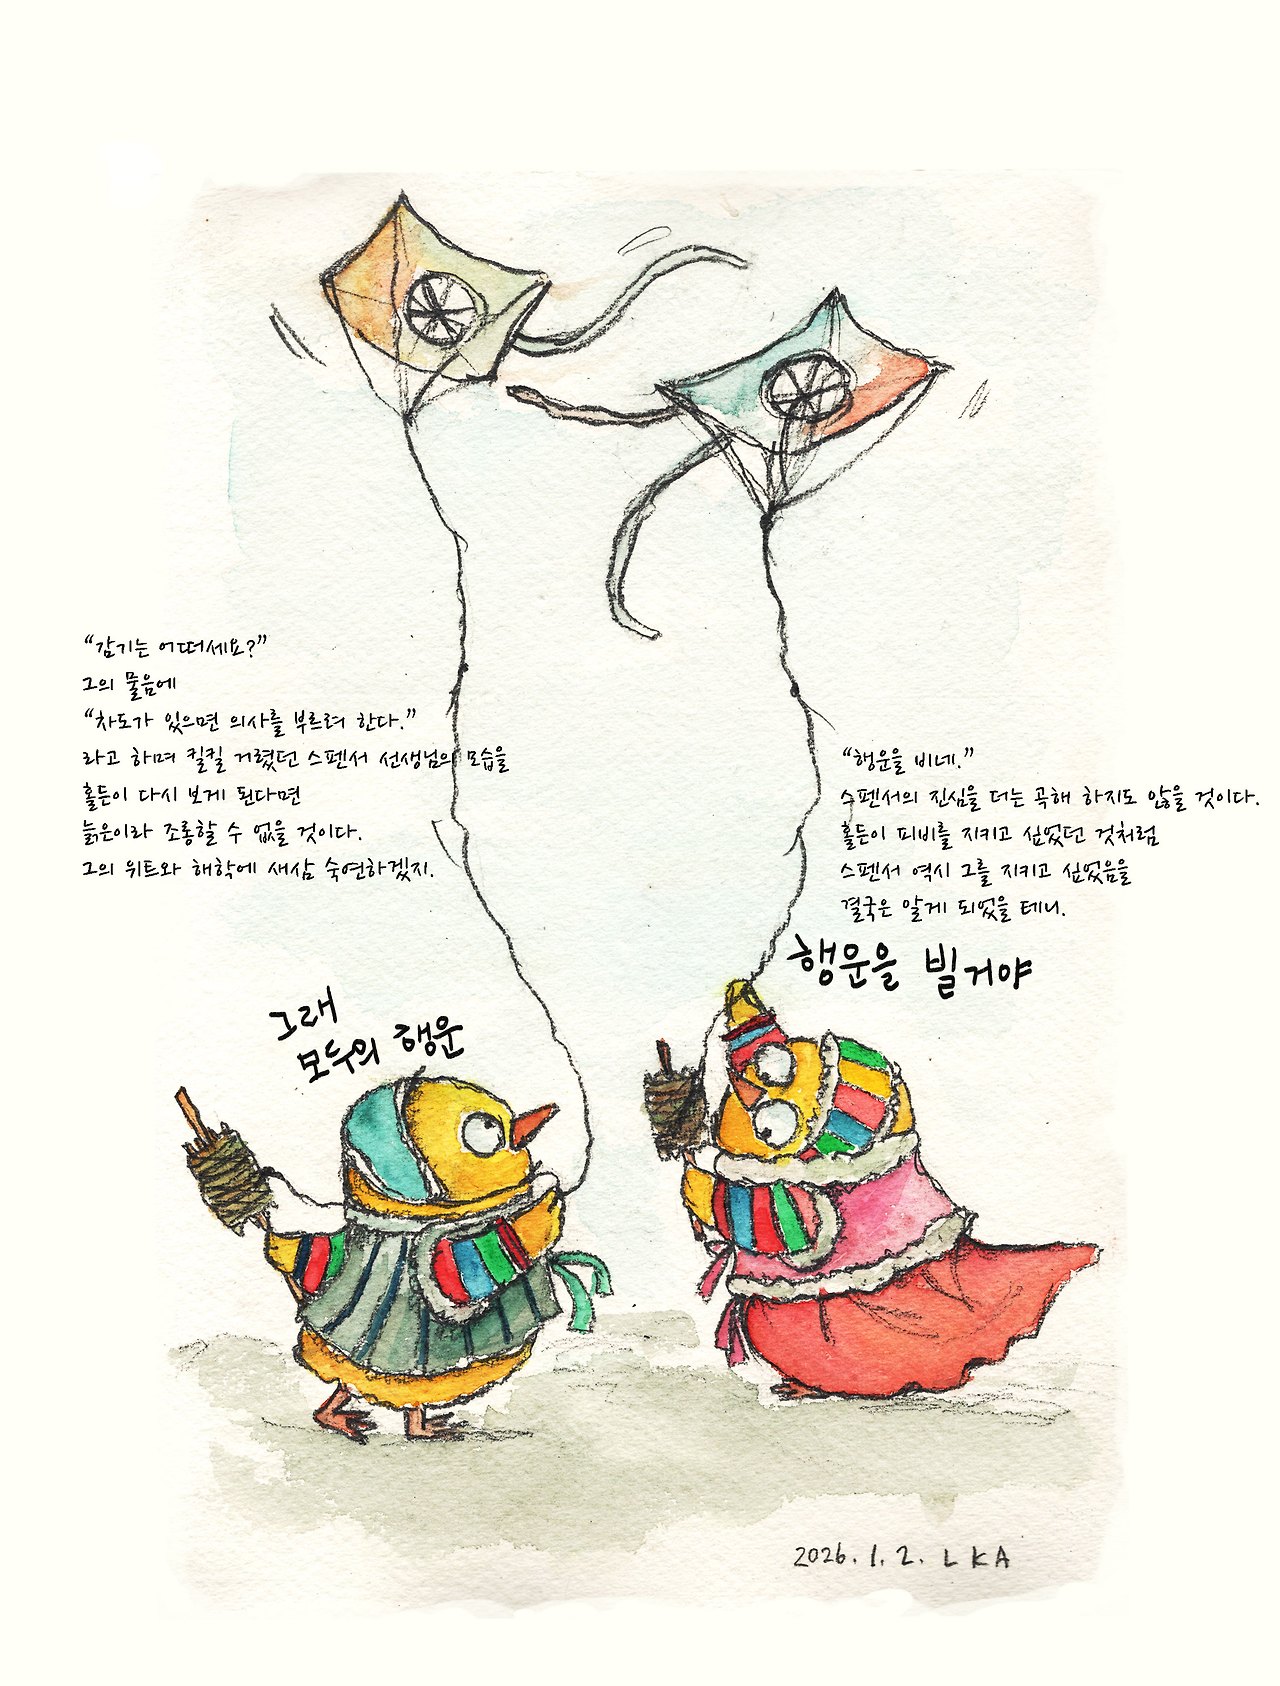 “감기는 어떠세요?”
그의 물음에
“차도가 있으면 의사를 부르려 한다.”
라고 하며 킬킬 거렸던 스펜서 선생님의 모습을
홀든이 다시 보게 된다면
늙은이라 조롱할 수 없을 것이다.
그의 위트와 해학에 새삼 숙연하겠지.
“행운을 비네.”
스펜서의 진심을 더는 곡해 하지도 않을 것이다.
홀든이 피비를 지키고 싶었던 것처럼
스펜서 역시 그를 지키고 싶었음을
결국은 알게 되었을 테니.
행운을 빌거야
그래
모두의 행운
2026.1.2. LKA